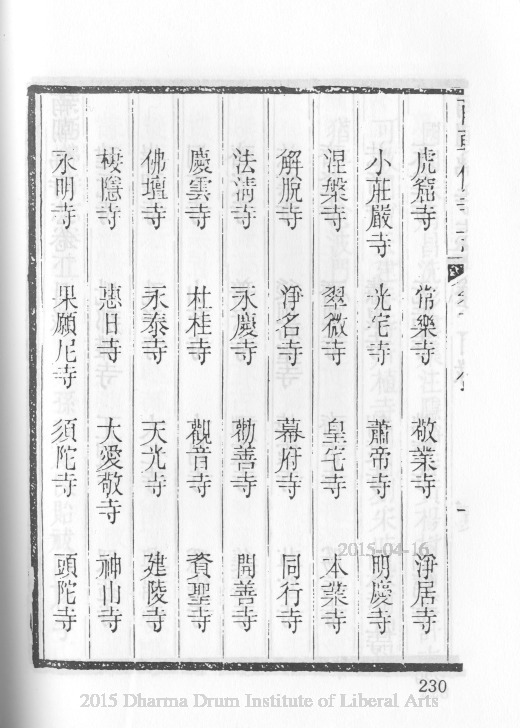 虎窟寺 常樂寺 敬業寺 淨居寺
小莊嚴寺 光宅寺 蕭帝寺 明慶寺
涅槃寺 翠微寺 皇宅寺 本業寺
解脫寺 淨名寺 幕府寺 同行寺
法淸寺 永慶寺 勸善寺 開善寺
慶雲寺 杜桂寺 觀音寺 資聖寺
佛壇寺 永泰寺 天光寺 建陵寺
棲隱寺 惠日寺 大愛敬寺 神山寺
永明寺 果願尼寺 須陀寺 頭陀寺
2015-04-16
230
2015 Dharma Drum Institute of Liberal Arts